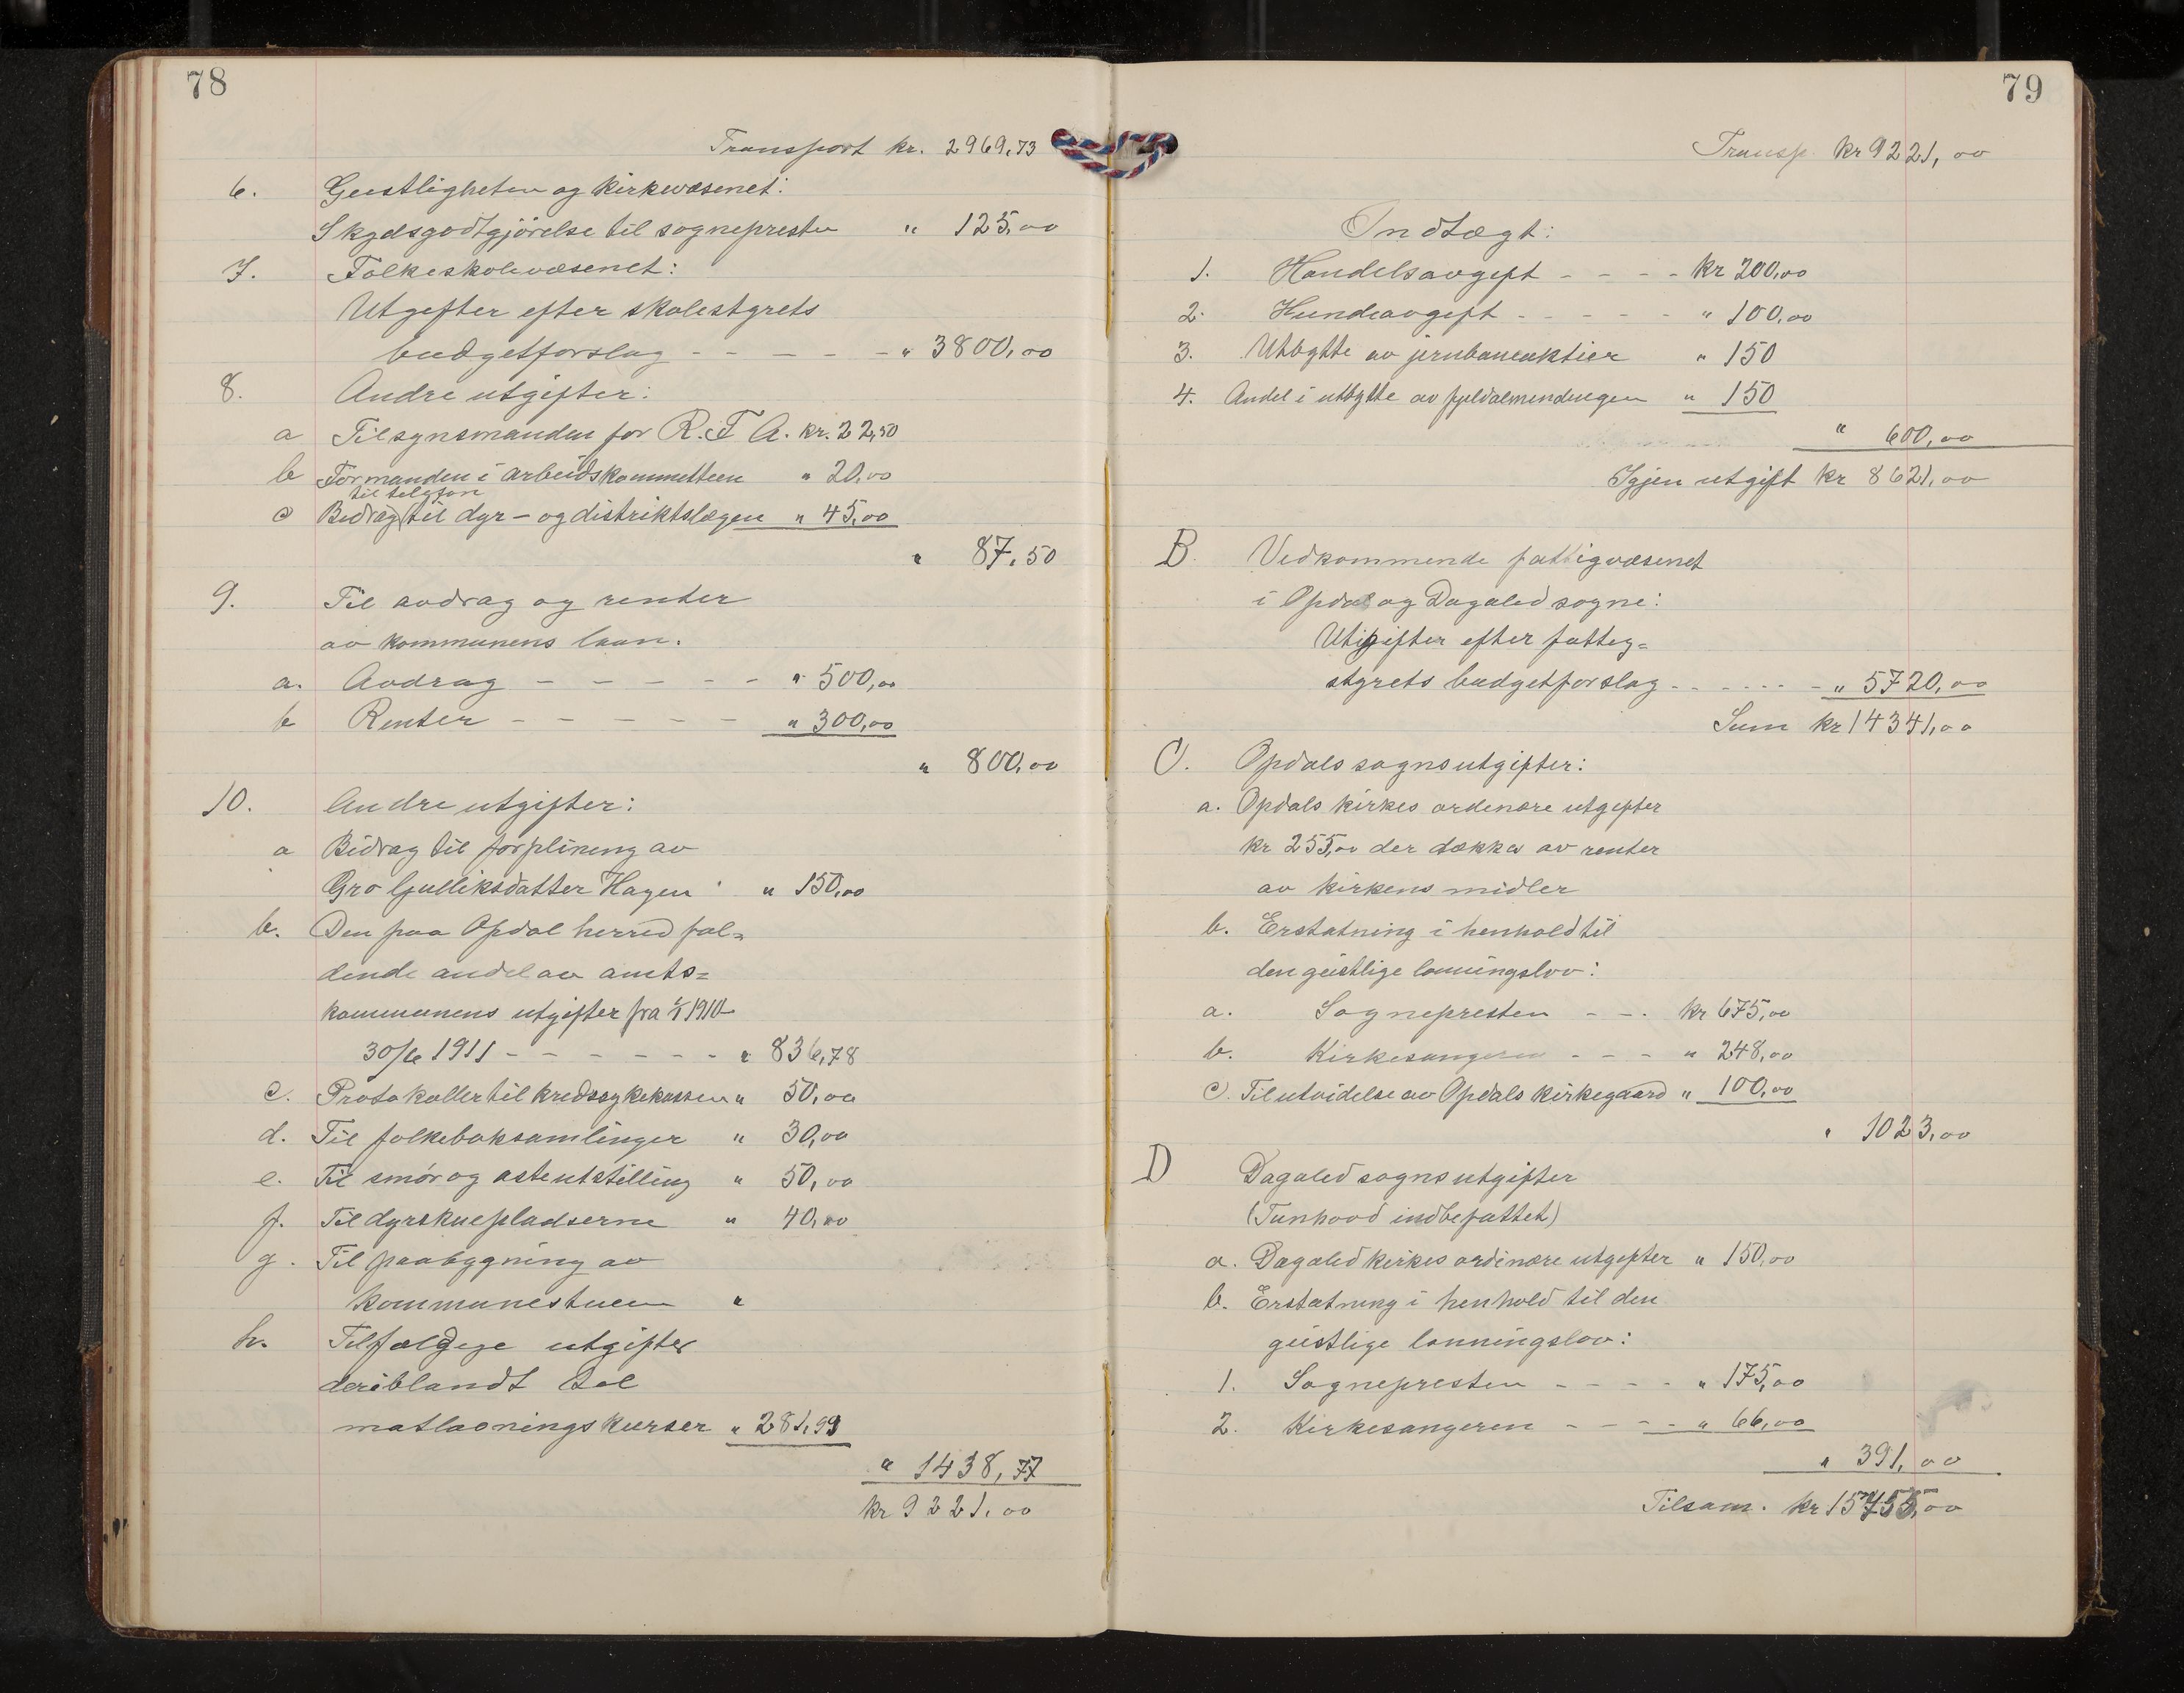 78
Transport kr. 2969,73
6. Geistligheten og kirkevæsenet:
Skydsgodtgjörelse til sognepresten " 125,00
7. Folkeskolevæsenet:
Utgifter efter skolestyrets
budgetforslag - - - - - " 3800,00
8. Andre utgifter:
a Tilsynsmanden for R. F. A. kr. 22,50
b Formanden i arbeidskommitteen " 20,00
til telefon
c Bidrag til dyr- og distriktslægen " 45,00
" 87,50
9. Til avdrag og renter
av kommunens laan.
a. Avdrag - - - - - " 500,00
b Renter - - - - - " 300,00
" 800,00
10. Andre utgifter:
a Bidrag til forpleining av
Gro Gulliksdatter Hagen " 150,00
b. Den paa Opdal herred fal=
dende andel av amts=
kommunens utgifter fra 1/1 1910-
30/6 1911 - - - - - - - " 836,78
c. Protokoller til kredssykekassen " 50,00
d. Til folkeboksamlinger " 30,00
e. Til smör og osteutstilling " 50,00
f. Til dyrskuepladserne " 40,00
g. Til paabygning av
kommunestuen "
h. Tilfældige utgifter
deriblandt til
matlavningskurser " 281,99
" 1438,77
kr 9221,00
79
Transp. kr 9221,00
Indtægt:
1. Handelsavgift - - - - kr 200,00
2. Hundeavgift - - - - - " 100,00
3. Utbytte av jernbaneaktier " 150
4. Andel i utbytte av fjeldalmendingen " 150
" 600,00
Igjen utgift kr 8621,00
B. Vedkommende fattigvæsenet
i Opdal og Dagalid sogne:
Utgifter efter fattig=
styrets budgetforslag - - - - - - " 5720,00
Sum kr 14341,00
C. Opdals sognsutgifter:
a. Opdals kirkes ordenære utgifter
kr 255,00 der dækkes av renter
av kirkens midler
b. Erstatning i henhold til
den geistlige lønningslov:
a. Sognepresten - - - kr 675,00
b. Kirkesangeren - - - " 248,00
c. Til utvidelse av Opdals kirkegaard " 100,00
" 1023,00
D Dagalid sognsutgifter
(Tunhovd indbefattet)
a. Dagalid kirkes ordinære utgifter " 150,00
b. Erstatning i henhold til den
geistlige lønningslov:
1. Sognepresten - - - - " 175,00
2. Kirkesangeren - - - - " 66,00
" 391,00
Tilsam. kr 15755,00